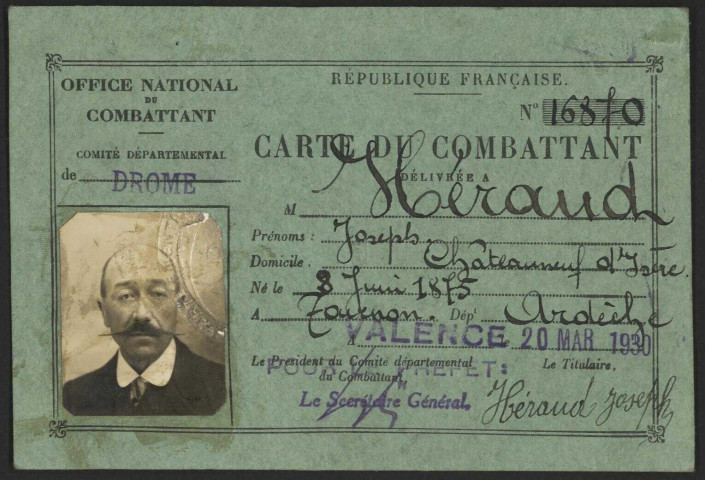 OFFICE NATIONAL
DU
COMBATTANT
COMITÉ DÉPARTEMENTAL
de DROME
RÉPUBLIQUE FRANÇAISE.
N° 16870
CARTE DU COMBATTANT
DÉLIVRÉE A
M Héraud
Prénoms : Joseph
Domicile. Châteauneuf d'Isère.
Né le 8 Juin 1875
A Tournon. Dép' Ardèche
A VALENCE 20 MAR 1930
Le Président du Comité départemental
du Combattant,
POUR LE PREFET:
Le Secrétaire Général.
Le Titulaire,
Héraud Joseph